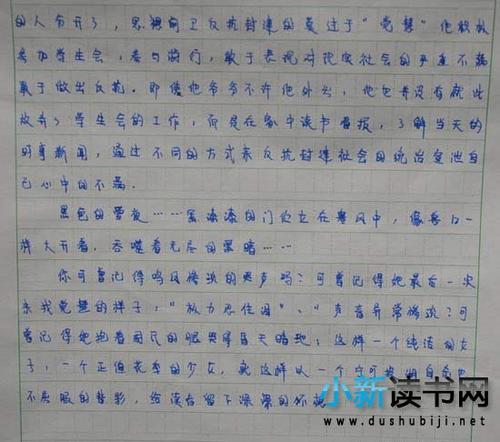 的人分开了，思想前卫反抗封建的莫过于“觉慧”他积极
参加学生会，参与游行，敢于表现对现实社会的严重不满
敢于做出反抗。即使他爷爷不许他外出，他也并没有就此
放弃了学生会的工作，而是在家中读书看报，了解当天的
时事新闻，通过不同的方式来反抗封建社会的统治发泄自
己心中的不满。
黑色的黑夜……黑漆漆的门伫立在寒风中，像兽口一
样大开着，吞噬着无尽的黑暗……
你可曾记得鸣凤凄凉的哭声吗？可曾记得她最后一次
去找觉慧的样子：“极力忍住泪”、“声音异常凄凉？可
曾记得她抱着国民的眼哭得昏天暗地；这样一个纯洁的女
子，一个正值花季的少女，就这样以一个宁可
不屈服的背影，给读者留下深深的怀
小新读书网
www.dushubiji.net